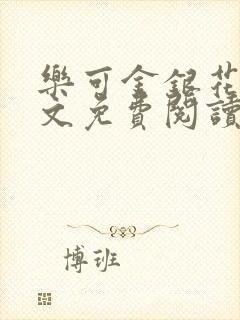 樂可金銀花
文免費閱讀
博班